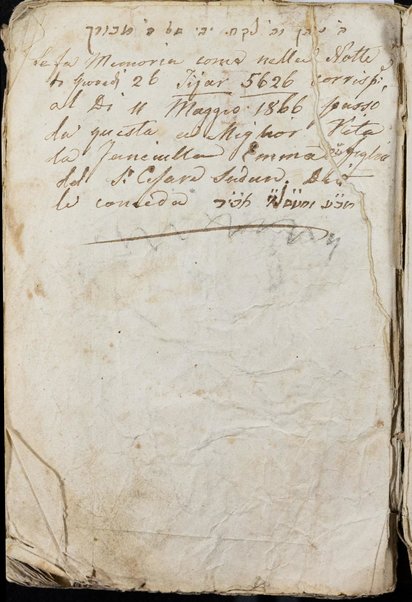 ה׳ נתן וה׳ לקח יהי שם ה׳ מבורך
Si fa Memoria come nella Notte
di Giovedì 26 Jijar 5626 corrispe
al Dì 11 Maggio 1866 passò
da questa a Miglior Vita
la Fanciulla Emma figlia
del Sr Cesare Sadun. Dio
le conceda